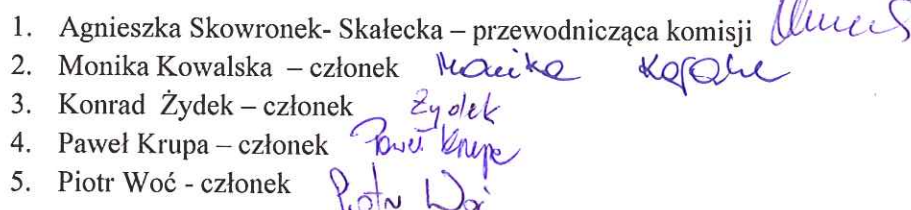 1. Agnieszka Skowronek- Skałecka – przewodnicząca komisji
2. Monika Kowalska – członek Monika
3. Konrad Żydek – członek Żydek
4. Paweł Krupa – członek Paweł Krupa
5. Piotr Woć - członek Piotr Woć